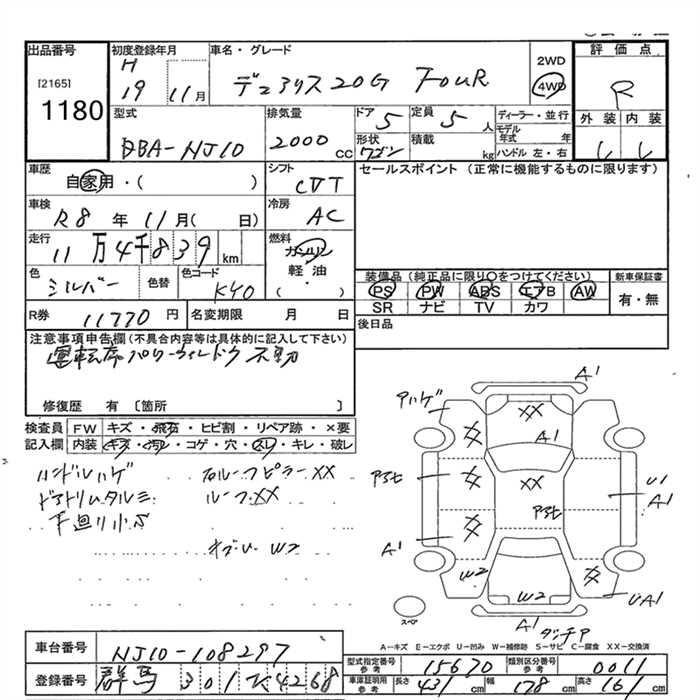 出品番号 初度登録年月 車名・グレード 2WD 評価点
[2165] H 19 11月 デュアリス20G FouR 4WD R
1180
型式 排気量 ドア 定員 ディーラー・並行 外装 内装
DBA-NJ10 2000cc 5 5人 モデル年式 年
形状 ワゴン 積載 kg ハンドル 左・右
車歴 シフト セールスポイント (正常に機能するものに限ります)
自家用・( ) CVT
車検 冷房
R8年11月( 日) AC
走行 燃料
11万4千839km ガソリン
色 色替 色コード 軽油・
シルバー K40 ( )
装備品(純正品に限り○をつけてください) 新車保証書
PS PW ABS エアB AW 有・無
SR ナビ TV カワ
R券 11770円 名変期限 月 日 後日品
注意事項申告欄(不具合内容等は具体的に記入して下さい)
運転席パワーウィンドウ不動
修復歴 有 〔箇所 〕
検査員 FW キズ・飛石・ヒビ割・リペア跡・×要
記入欄 内装 キズ・汚れ・コゲ・穴・スレ・キレ・破レ
ハンドルハゲ 右ルーフピラーXX
ドアトリムタルミ ルーフXX
下廻り小S
W2
A1
アハゲ XX
A1
XX
U1
A1
A1
W2 W2 UA1
スペア
A-キズ E-エクボ U-凹み W-補修跡 S-サビ C-腐食 XX-交換済
車台番号 NJ10-108297
型式指定番号 参考 15670 類別区分番号 参考 0011
登録番号 群馬 301 4268
車庫証明用 参考 長さ 431cm 幅 178cm 高さ 161cm